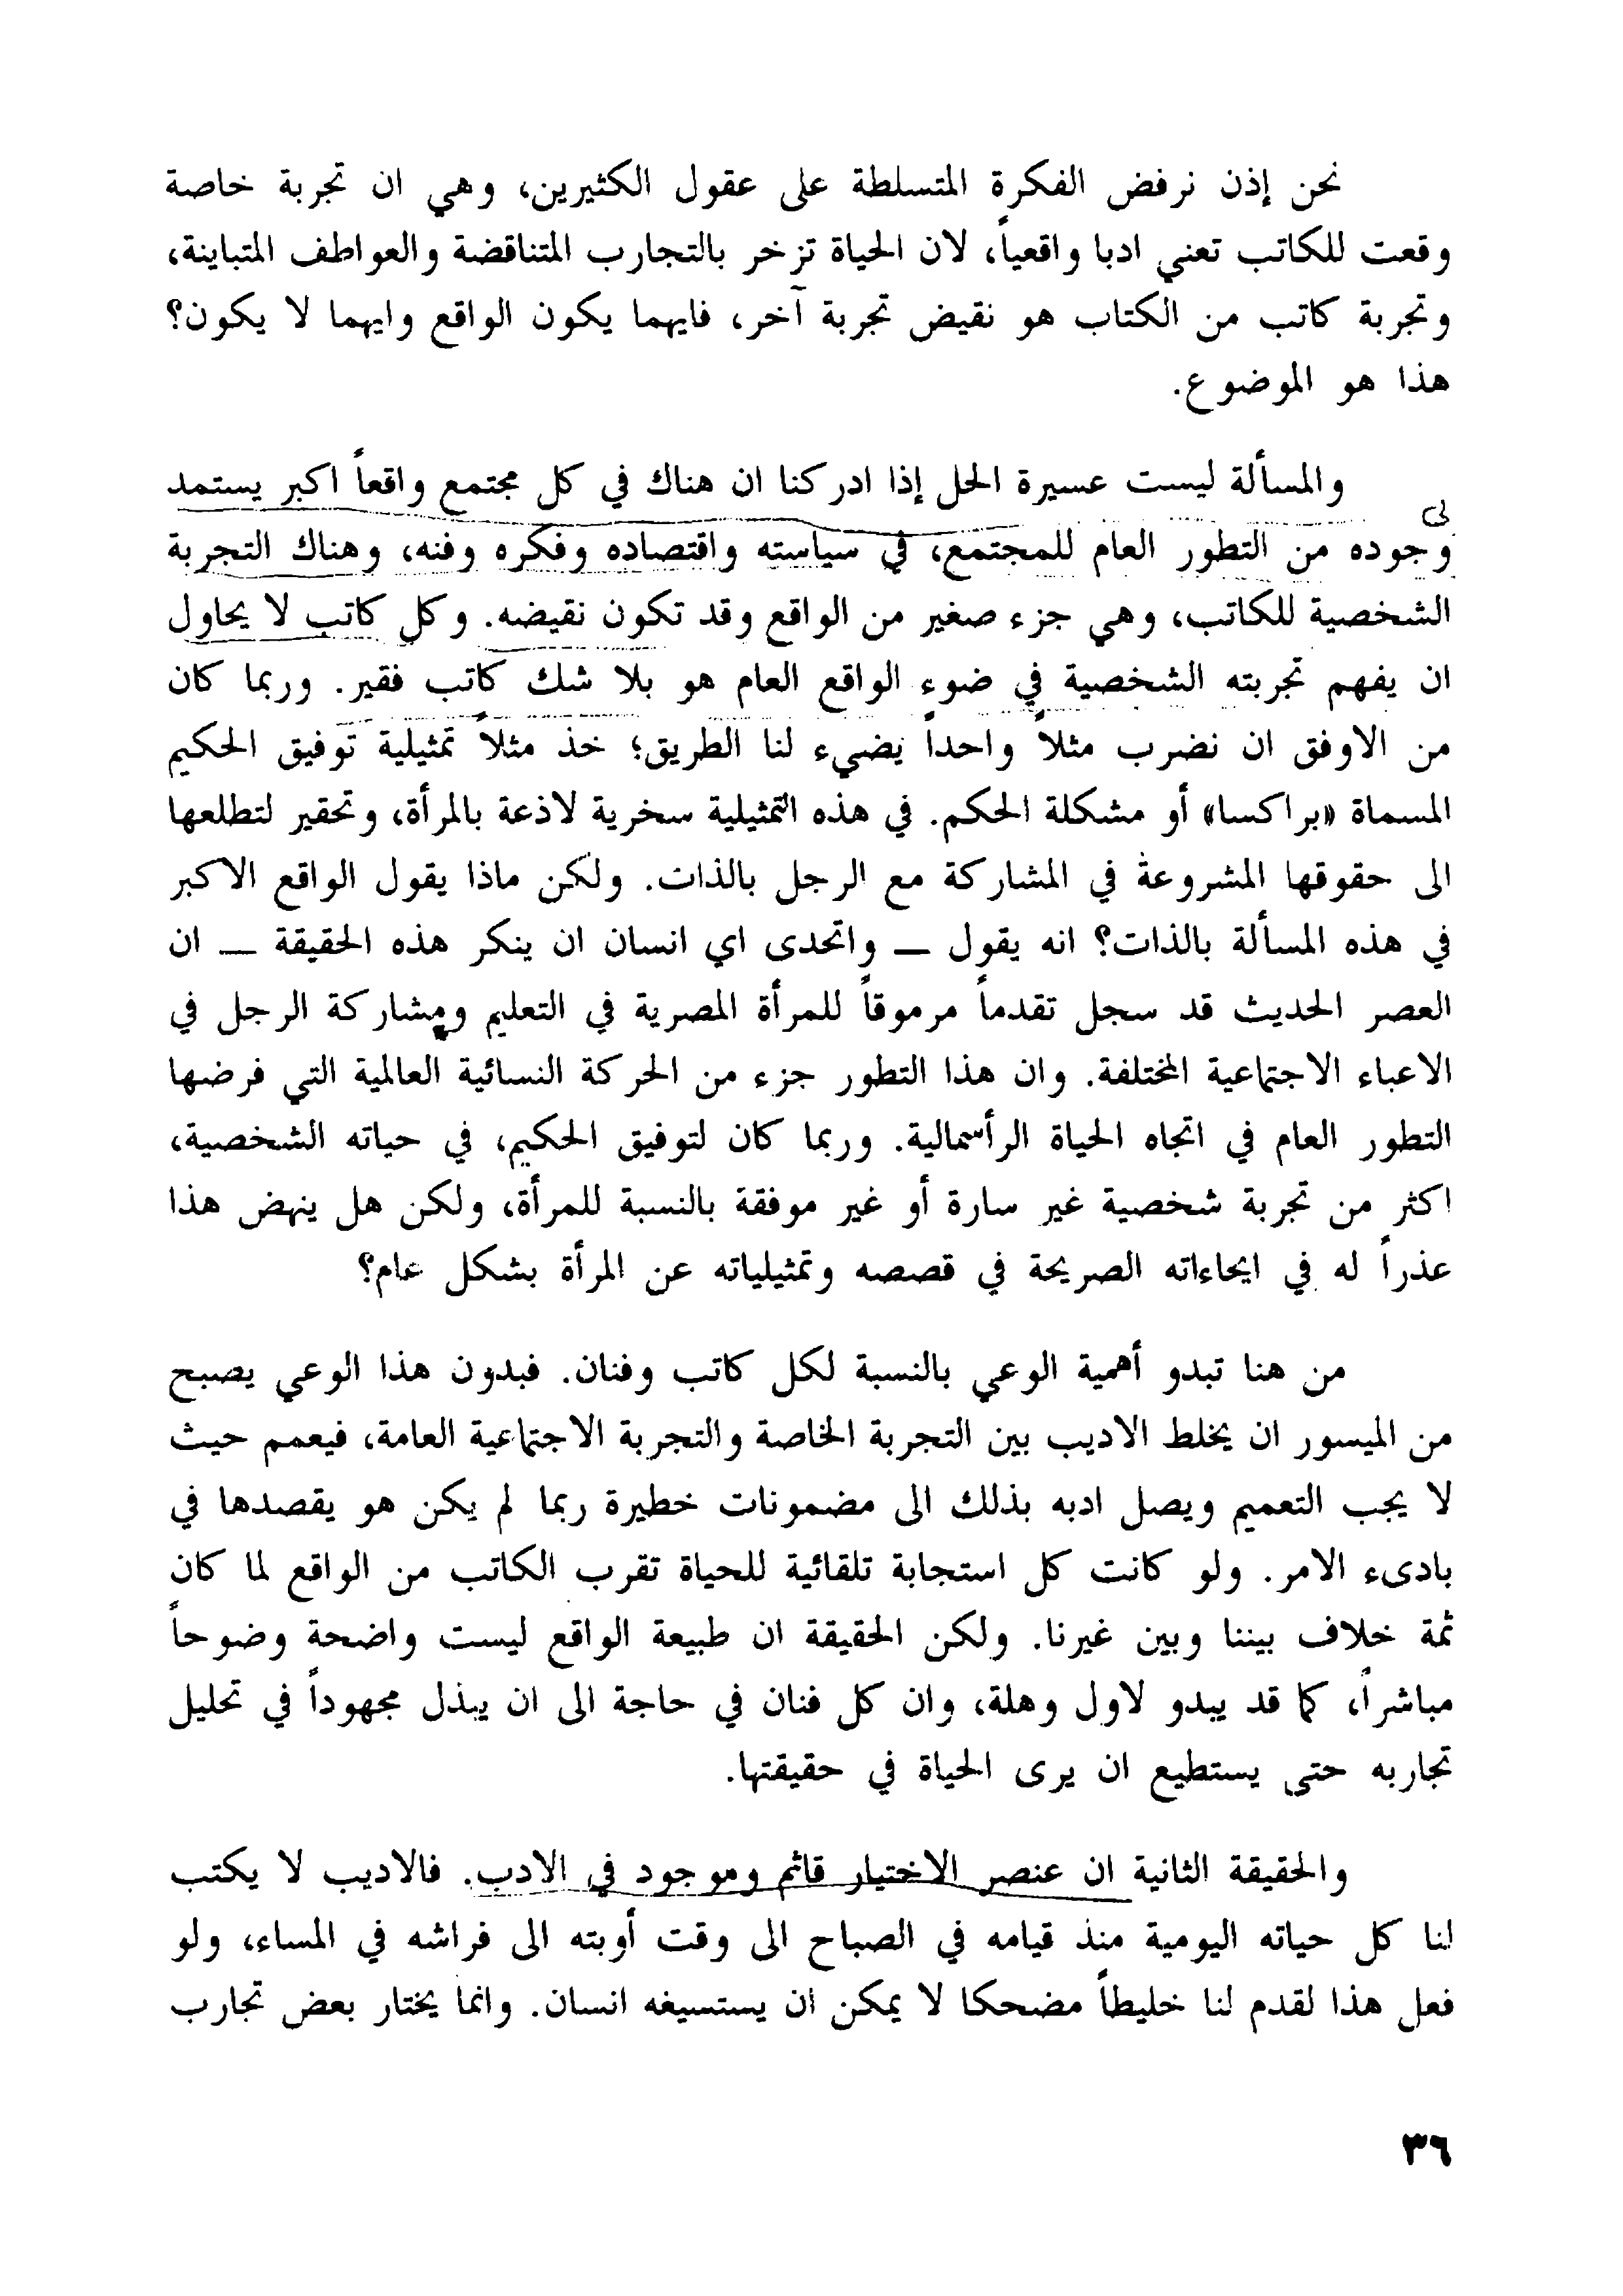 نحن إذن نرفض الفكرة المتسلطة على عقول الكثيرين، وهي ان تجربة خاصة
وقعت للكاتب تعني ادبا واقعياً، لان الحياة تزخر بالتجارب المتناقضة والعواطف المتباينة،
وتجربة كاتب من الكتاب هو نقيض تجربة آخر، فايهما يكون الواقع وايهما لا يكون؟
هذا هو الموضوع.
والمسألة ليست عسيرة الحل إذا ادركنا ان هناك في كل مجتمع واقعاً اكبر يستمد
وجوده من التطور العام للمجتمع، في سياسته واقتصاده وفكره وفنه، وهناك التجربة
الشخصية للكاتب، وهي جزء صغير من الواقع وقد تكون نقيضه. وكل كاتب لا يحاول
ان يفهم تجربته الشخصية في ضوء الواقع العام هو بلا شك كاتب فقير. وربما كان
من الاوفق ان نضرب مثلاً واحداً يضيء لنا الطريق؛ خذ مثلاً تمثيلية توفيق الحكيم
المسماة «براكسا» أو مشكلة الحكم. في هذه التمثيلية سخرية لاذعة بالمرأة، وتحقير لتطلعها
الى حقوقها المشروعة في المشاركة مع الرجل بالذات. ولكن ماذا يقول الواقع الاكبر
في هذه المسألة بالذات؟ انه يقول — واتحدى اي انسان ان ينكر هذه الحقيقة — ان
العصر الحديث قد سجل تقدماً مرموقاً للمرأة المصرية في التعليم ومشاركة الرجل في
الاعباء الاجتماعية المختلفة. وان هذا التطور جزء من الحركة النسائية العالمية التي فرضها
التطور العام في اتجاه الحياة الرأسمالية. وربما كان لتوفيق الحكيم، في حياته الشخصية،
اكثر من تجربة شخصية غير سارة أو غير موفقة بالنسبة للمرأة، ولكن هل ينهض هذا
عذراً له في ايحاءاته الصريحة في قصصه وتمثيلياته عن المرأة بشكل عام؟
من هنا تبدو أهمية الوعي بالنسبة لكل كاتب وفنان. فبدون هذا الوعي يصبح
من الميسور ان يخلط الاديب بين التجربة الخاصة والتجربة الاجتماعية العامة، فيعمم حيث
لا يجب التعميم ويصل ادبه بذلك الى مضمونات خطيرة ربما لم يكن هو يقصدها في
بادىء الامر. ولو كانت كل استجابة تلقائية للحياة تقرب الكاتب من الواقع لما كان
ثمة خلاف بيننا وبين غيرنا. ولكن الحقيقة ان طبيعة الواقع ليست واضحة وضوحاً
مباشراً، كما قد يبدو لاول وهلة، وان كل فنان في حاجة الى ان يبذل مجهوداً في تحليل
تجاربه حتى يستطيع ان يرى الحياة في حقيقتها.
والحقيقة الثانية ان عنصر الاختيار قائم وموجود في الادب. فالاديب لا يكتب
لنا كل حياته اليومية منذ قيامه في الصباح الى وقت أوبته الى فراشه في المساء، ولو
فعل هذا لقدم لنا خليطاً مضحكا لا يمكن ان يستسيغه انسان. وانما يختار بعض تجارب
٣٦